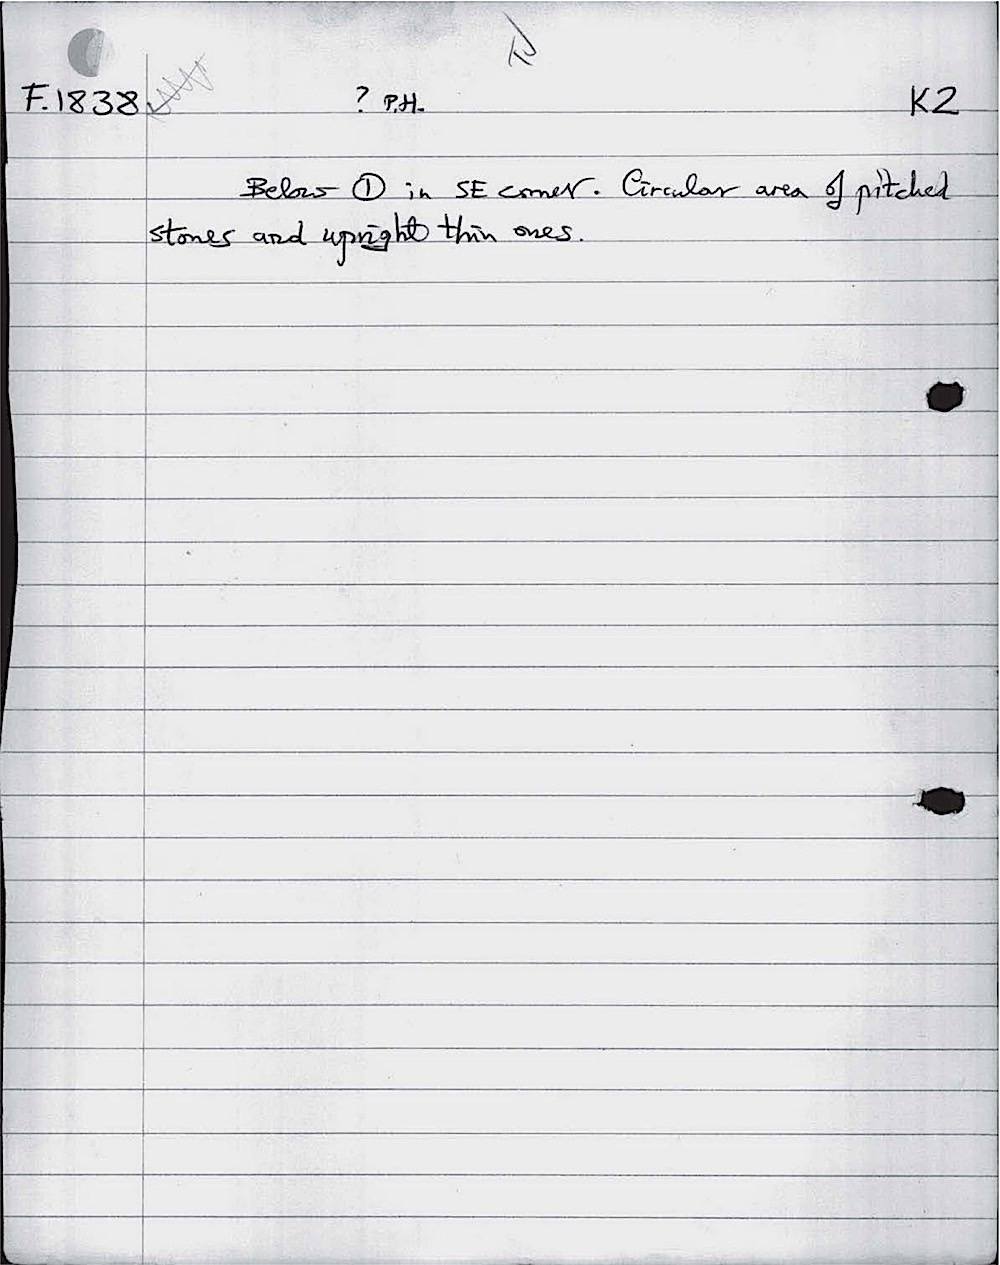 F.1838 ? P.H. K2
Below ① in SE corner. Circular area of pitched
stones and upright thin ones.